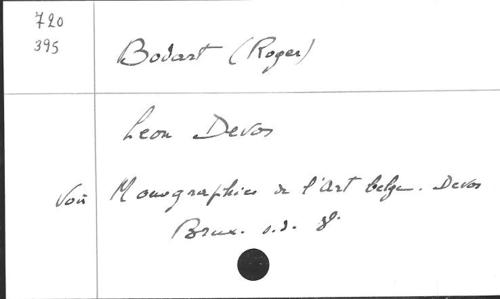 720
395
Bodart (Roger)
Leon Devos
Voir Monographies de l'Art belge. Devos
Brux. s.d. 8°.